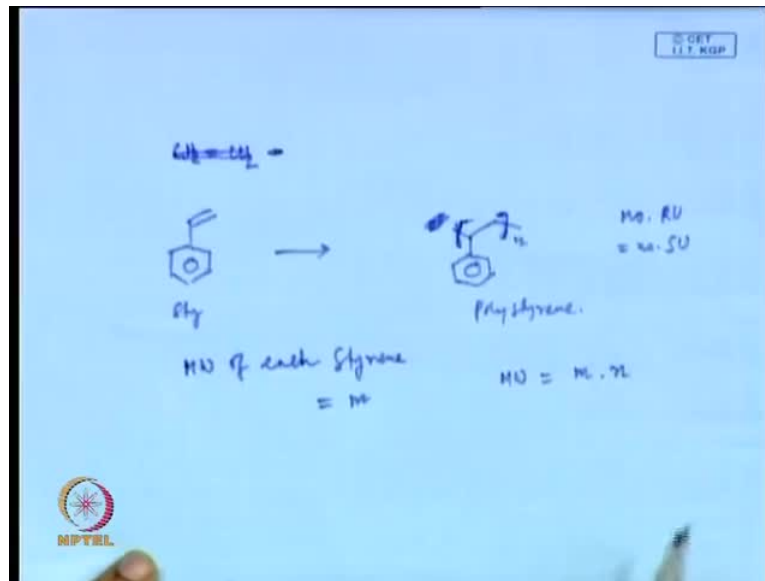 © CET
I.I.T. KGP
n
no. RU
= no. SU
Sty
Polystyrene.
MW of each Styrene
= m
MW = m.n
NPTEL